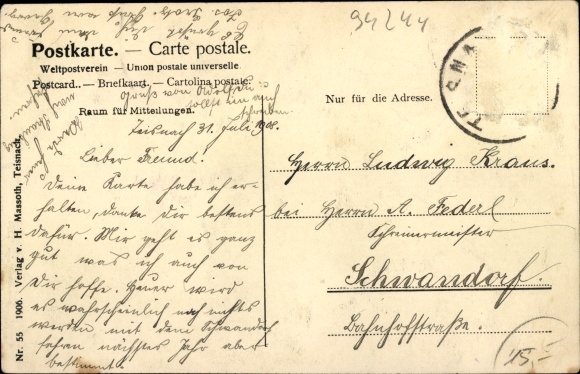 94244
Postkarte. — Carte postale.
Weltpostverein — Union postale universelle
Postcard. — Briefkaart. — Cartolina postale
Raum für Mitteilungen.
Nur für die Adresse.
Gruß von
sollst ihm auch
schreiben
Teisnach 31. Juli 1908.
Lieber Freund.
Deine Karte habe ich er-
halten, danke dir bestens
dafür. Mir geht es ganz
gut was ich auch von
dir hoffe. Heuer wird
es wahrscheinlich noch nichts
werden mit dem Schwandorf
fahren nächstes Jahr aber
bestimmt.
Herrn Ludwig Kraus.
bei Herrn A. Federl
Schreinermeister
Schwandorf.
Bahnhofstraße.
15.-
Nr. 55 1906. Verlag v. H. Massoth, Teisnach.